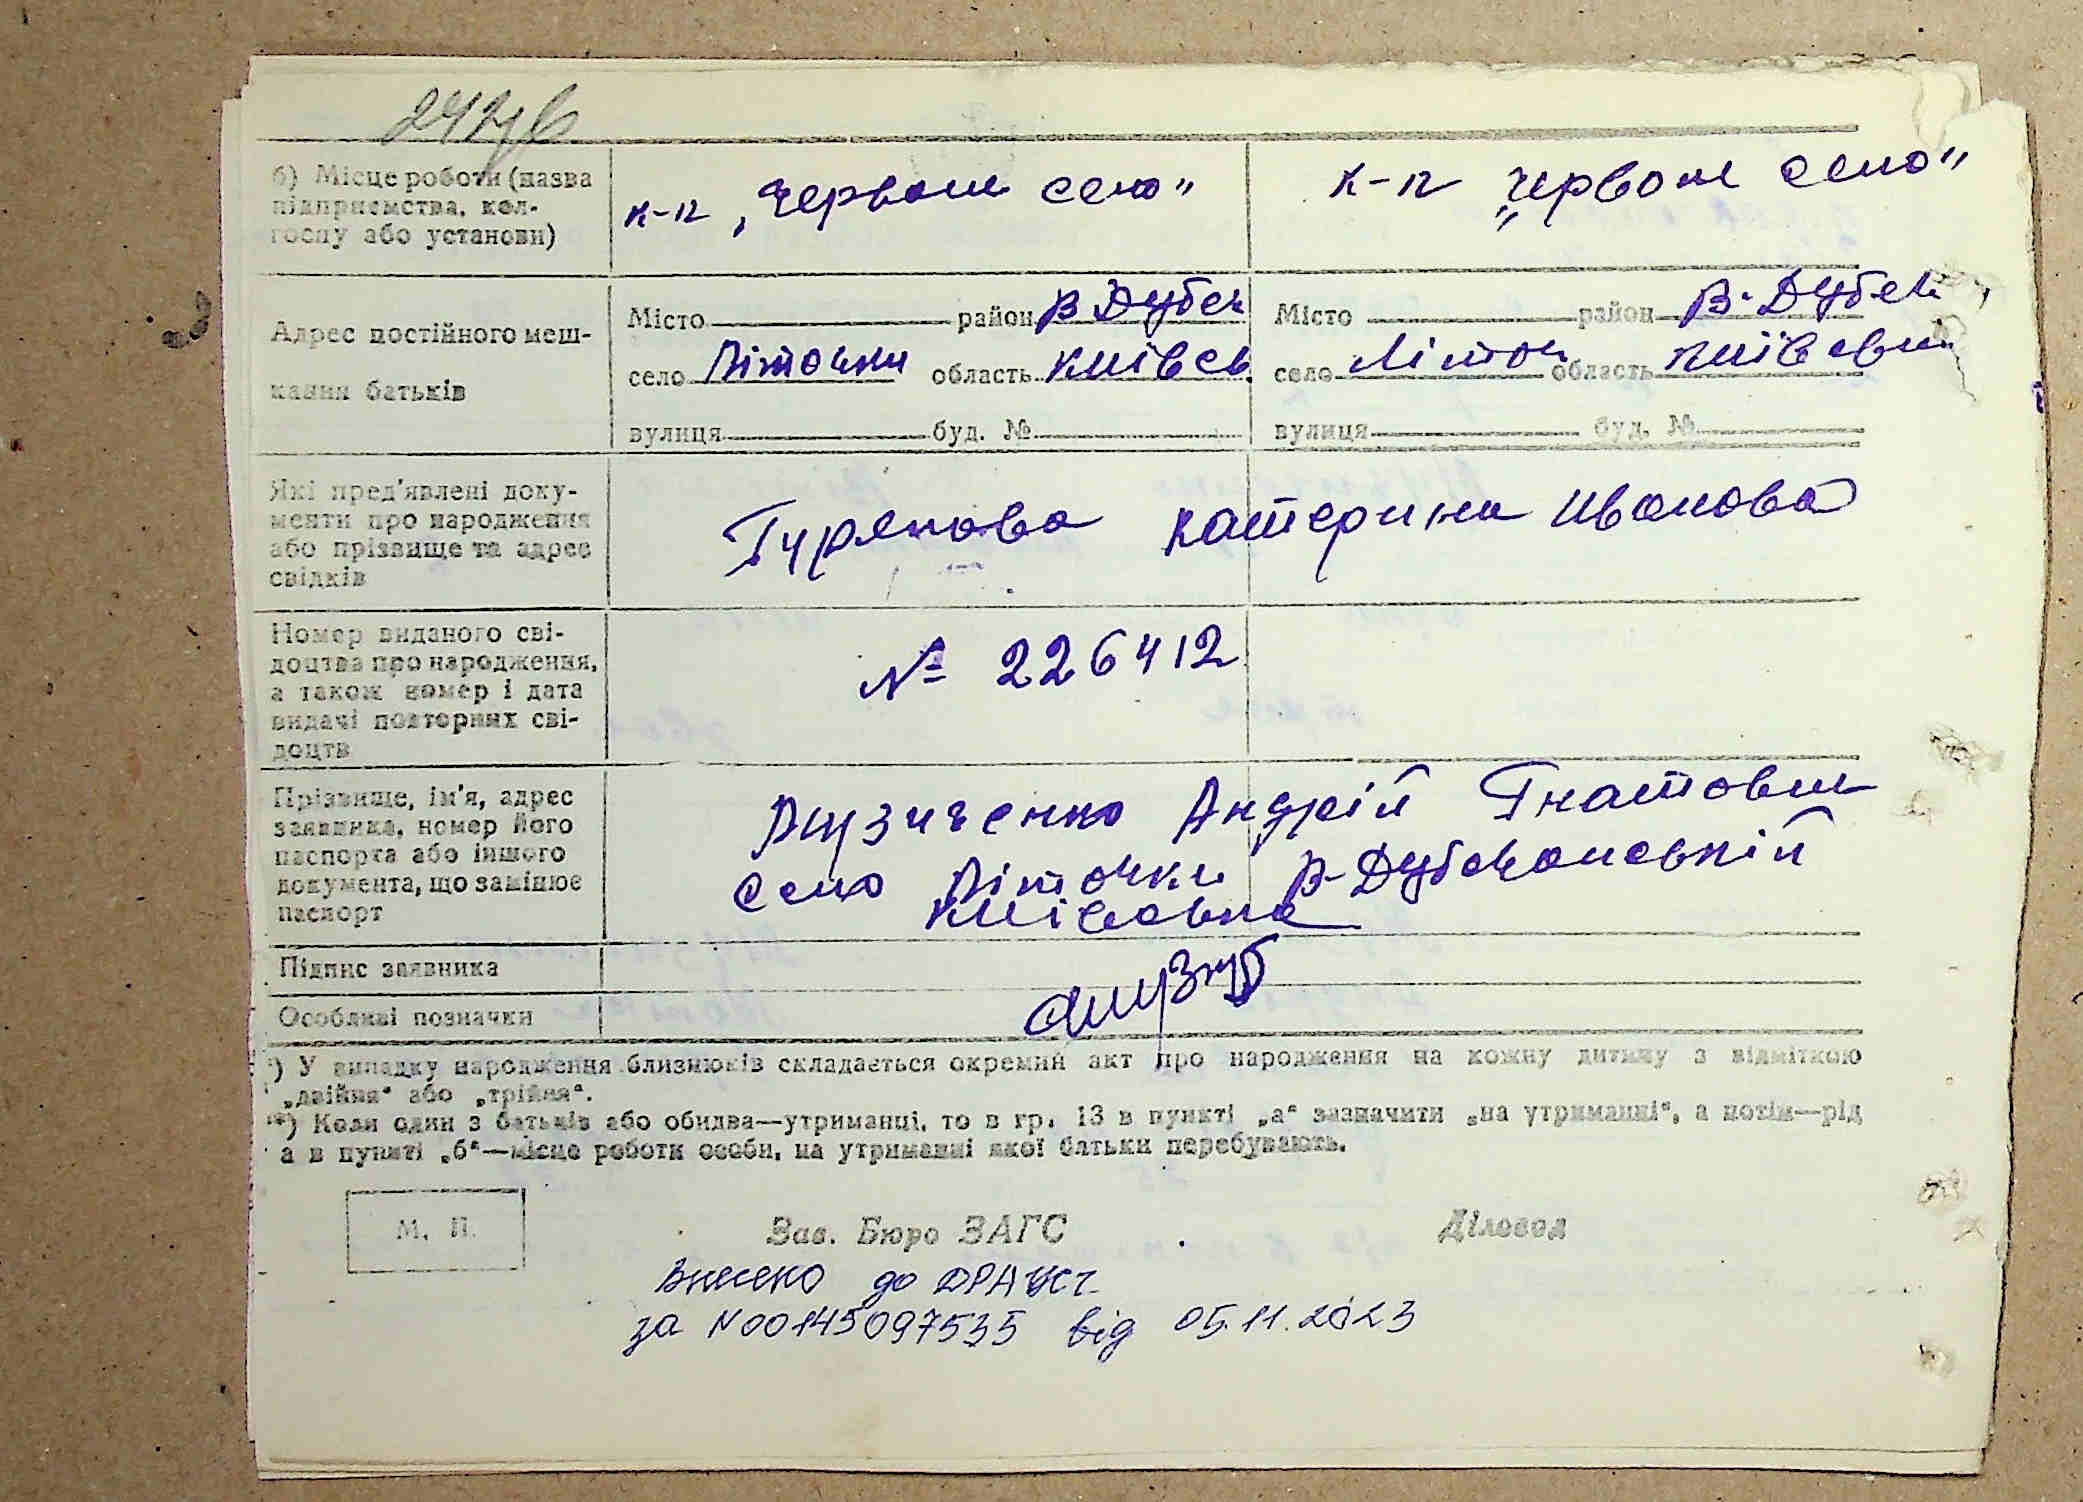 242зв
б) Місце роботи (назва підприємства, колгоспу або установи)
к-п „Червоне село"
к-п „Червоне село"
Адрес постійного мешкання батьків
Місто район В Дубеч
село Літочки область Київсь
вулиця буд. №
Місто район В-Дубеч
село Літоч область Київськ
вулиця буд. №
Які пред'явлені документи про народження або прізвище та адрес свідків
Гурянова Катерина Иванова
Номер виданого свідоцтва про народження, а також номер і дата видачі повторних свідоцтв
№ 226412
Прізвище, ім'я, адрес заявника, номер його паспорта або іншого документа, що замінює паспорт
Музиченко Андрій Гнатович
село Літочки В-Дубечанській
Київська
Підпис заявника
Особливі позначки
*) У випадку народження близнюків складається окремий акт про народження на кожну дитину з відміткою
„двійня" або „трійня".
**) Коли один з батьків або обидва—утриманці, то в гр. 13 в пункті „а" зазначити „на утриманні", а потім—рід
а в пункті „б"—місце роботи особи, на утриманні якої батьки перебувають.
М. П.
Зав. Бюро ЗАГС
Діловод
Внесено до ДРАЦСг
за N00145097535 від 05.11.2023